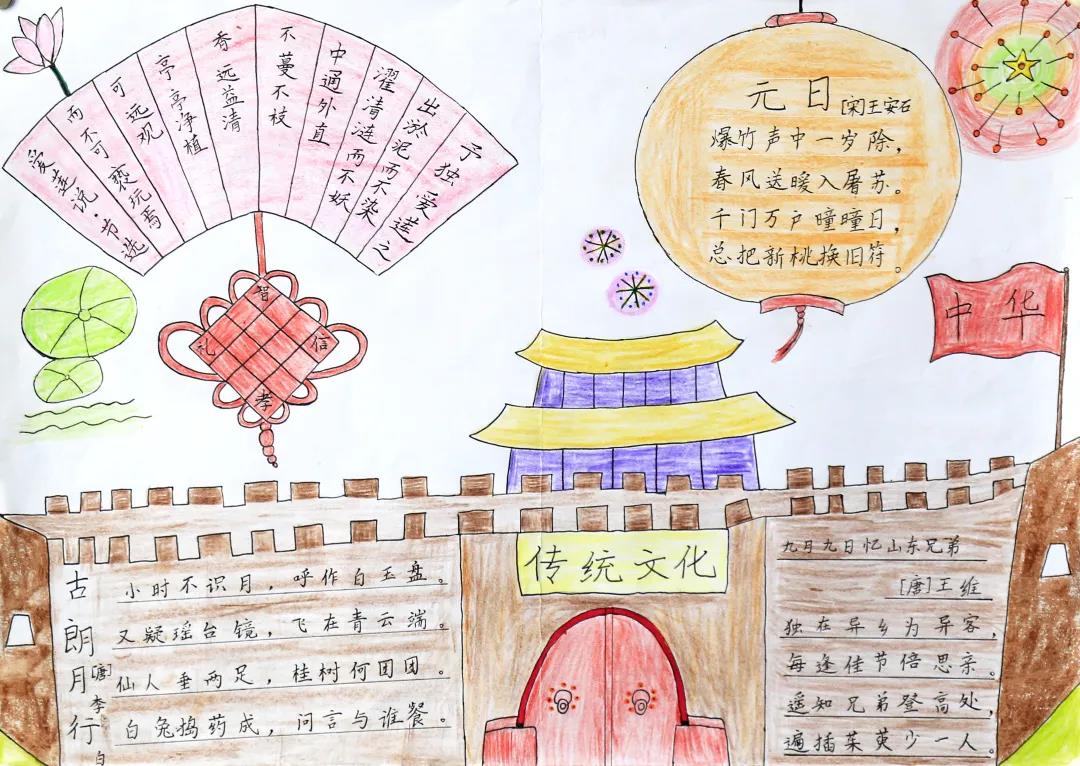 予独爱莲之
出淤泥而不染
濯清涟而不妖
中通外直
不蔓不枝
香远益清
亭亭净植
可远观
而不可亵玩焉
爱莲说·节选
元日
[宋]王安石
爆竹声中一岁除，
春风送暖入屠苏。
千门万户瞳瞳日，
总把新桃换旧符。
智
礼 信
孝
中华
传统文化
古朗月行
[唐]李白
小时不识月，呼作白玉盘。
又疑瑶台镜，飞在青云端。
仙人垂两足，桂树何团团。
白兔捣药成，问言与谁餐。
九月九日忆山东兄弟
[唐]王维
独在异乡为异客，
每逢佳节倍思亲。
遥知兄弟登高处，
遍插茱萸少一人。